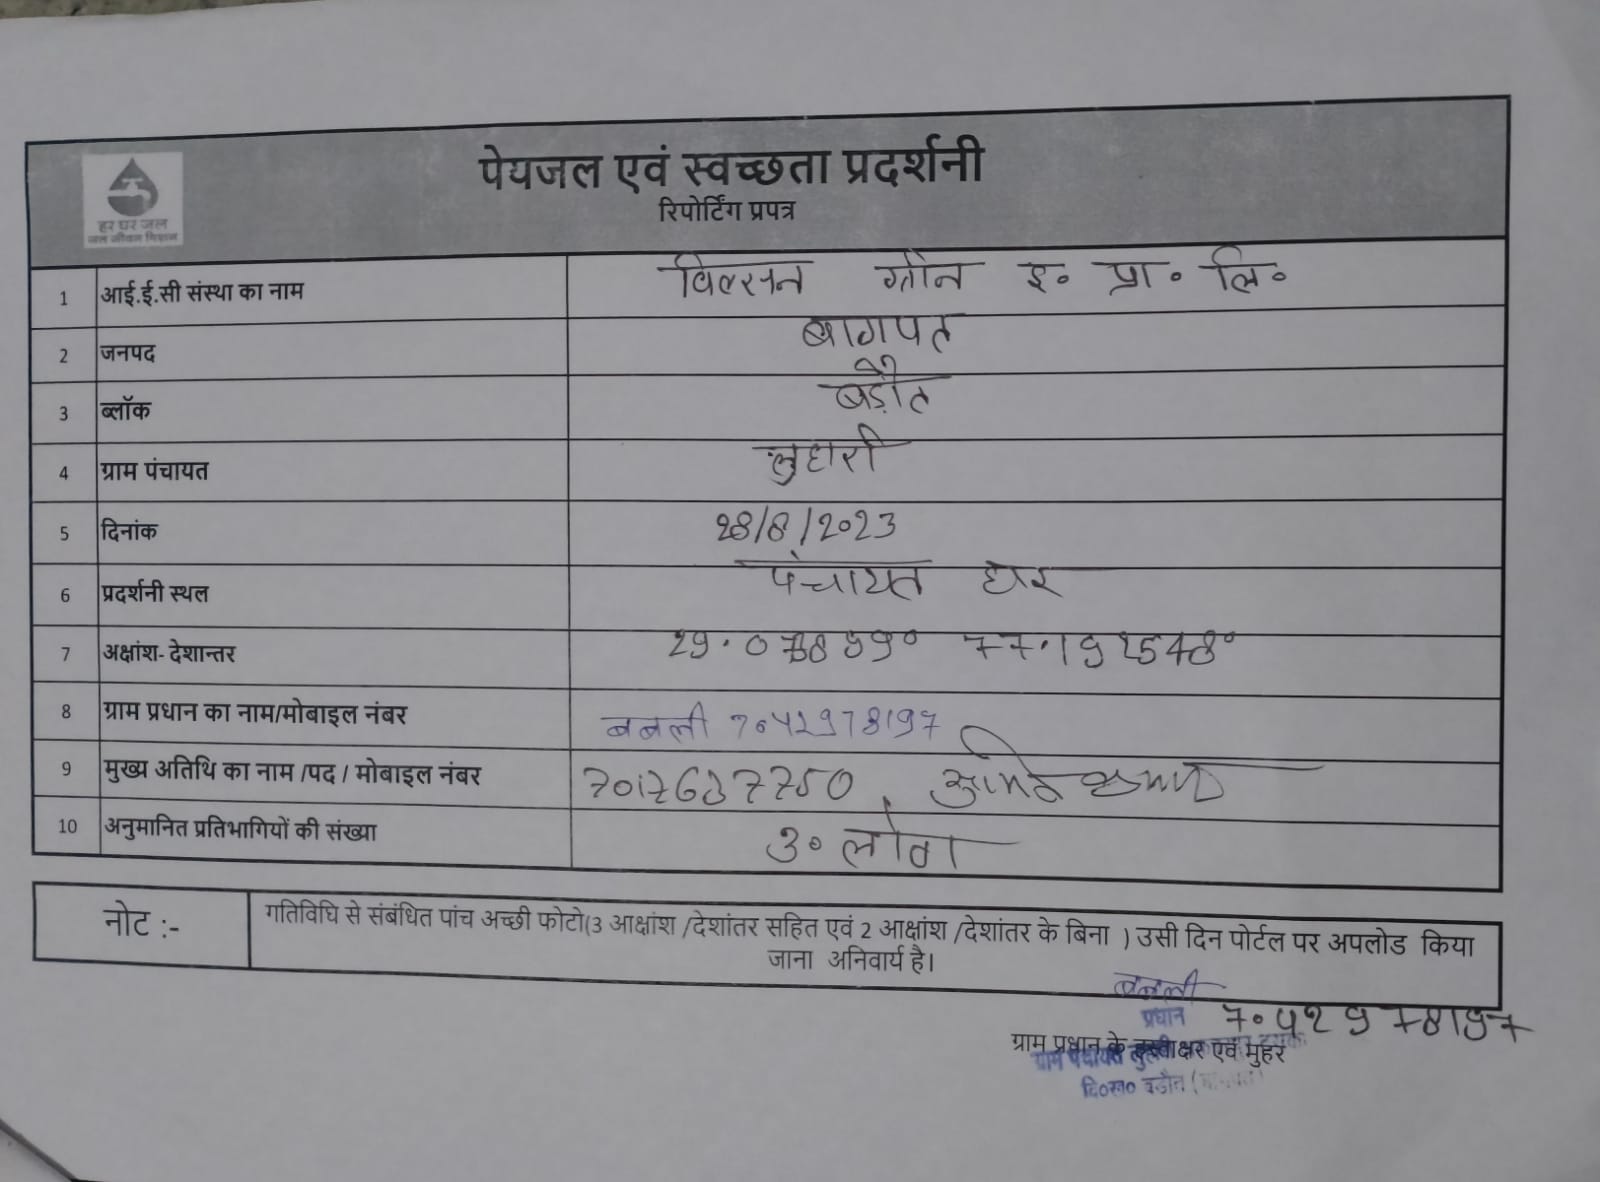 हर घर जल
जल जीवन मिशन
पेयजल एवं स्वच्छता प्रदर्शनी
रिपोर्टिंग प्रपत्र
1 आई.ई.सी संस्था का नाम विल्सन ग्रीन इ० प्रा० लि०
2 जनपद बागपत
3 ब्लॉक बड़ौत
4 ग्राम पंचायत लुहारी
5 दिनांक 28/8/2023
6 प्रदर्शनी स्थल पंचायत घर
7 अक्षांश- देशान्तर 77.192548°
8 ग्राम प्रधान का नाम/मोबाइल नंबर बबली 7042978197
9 मुख्य अतिथि का नाम /पद / मोबाइल नंबर
10 अनुमानित प्रतिभागियों की संख्या 30 लोग
नोट :- गतिविधि से संबंधित पांच अच्छी फोटो(3 आक्षांश /देशांतर सहित एवं 2 आक्षांश /देशांतर के बिना ) उसी दिन पोर्टल पर अपलोड किया
जाना अनिवार्य है।
बबली
प्रधान 7042978197
ग्राम प्रधान के हस्ताक्षर एवं मुहर
ग्राम पंचायत
वि०ख० बड़ौत (बागपत)